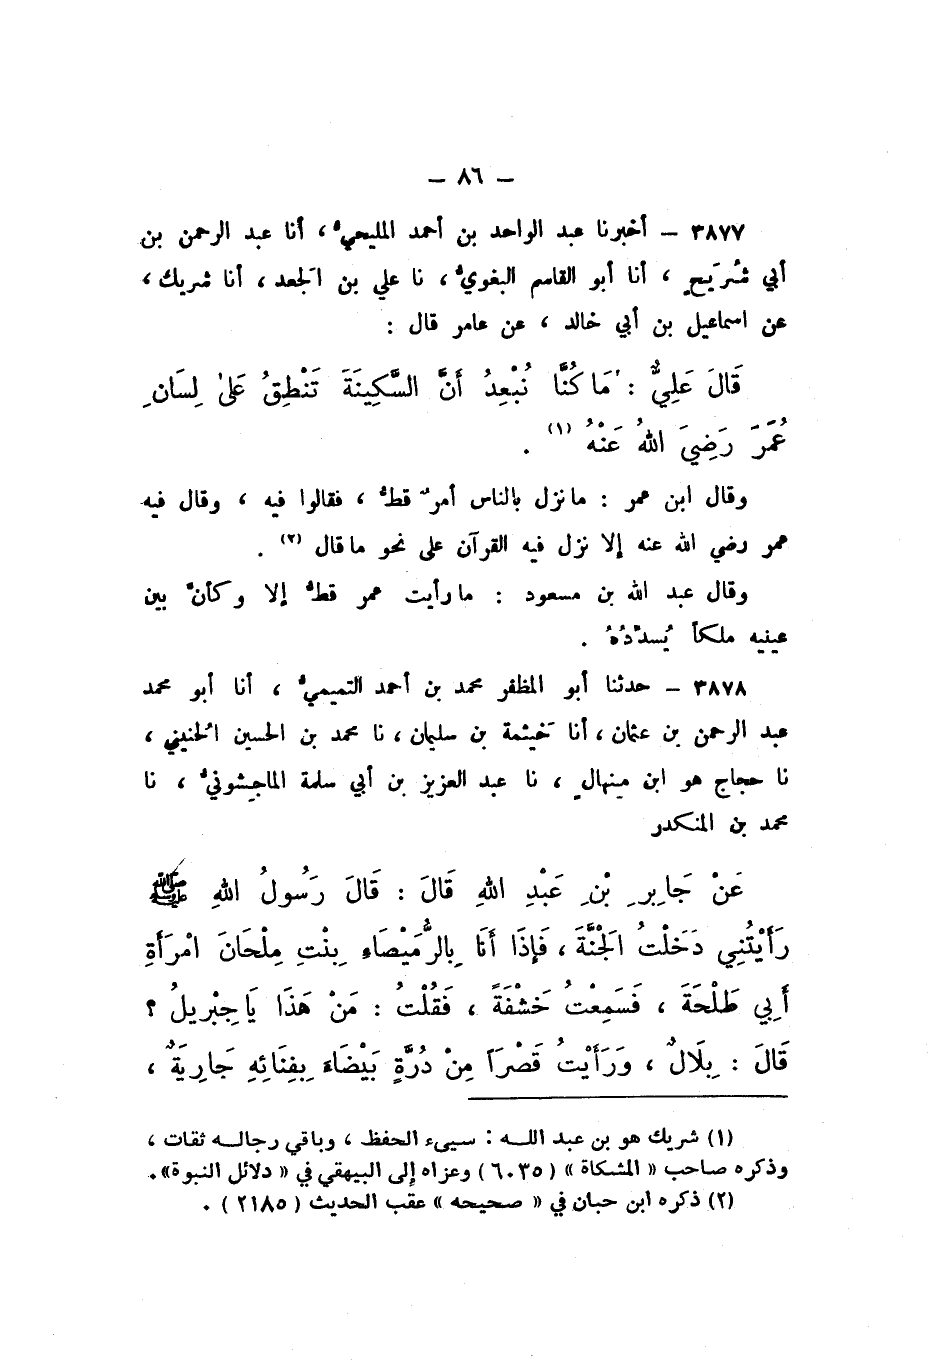 – ٨٦ –
٣٨٧٧ – أخبرنا عبد الواحد بن أحمد المليحيُّ ، أنا عبد الرحمن بن
أبي شُرَيحٍ ، أنا أبو القاسم البغويُّ ، نا علي بن الجَعد ، أنا شريك ،
عن اسماعيل بن أبي خالد ، عن عامر قال :
قَالَ عَلِيٌّ : مَا كُنَّا نُبْعِدُ أَنَّ السَّكِينَةَ تَنْطِقُ عَلَىٰ لِسَانِ
عُمَرَ رَضِيَ اللهُ عَنْهُ (١) .
وقال ابن عمر : ما نزل بالناس أمرٌ قطُّ ، فقالوا فيه ، وقال فيه
عمر رضي الله عنه إلا نزل فيه القرآن على نحو ما قال (٢) .
وقال عبد الله بن مسعود : ما رأيت عمر قطُّ إلا وكأنَّ بين
عينيه ملكاً يُسدِّدُهُ .
٣٨٧٨ – حدثنا أبو المظفر محمد بن أحمد التميميُّ ، أنا أبو محمد
عبد الرحمن بن عثمان ، أنا خَيثمة بن سليمان ، نا محمد بن الحسين الحُنيني ،
نا حجاج هو ابن مِنهالٍ ، نا عبد العزيز بن أبي سلمة الماجِشونيُّ ، نا
محمد بن المنكدر
عَنْ جَابِرِ بْنِ عَبْدِ اللهِ قَالَ : قَالَ رَسُولُ اللهِ ﷺ
رَأَيْتُنِي دَخَلْتُ الْجَنَّةَ ، فَإِذَا أَنَا بِالرُّمَيْصَاءِ بِنْتِ مِلْحَانَ امْرَأَةِ
أَبِي طَلْحَةَ ، فَسَمِعْتُ خَشْفَةً ، فَقُلْتُ : مَنْ هَذَا يَا جِبْرِيلُ ؟
قَالَ : بِلَالٌ ، وَرَأَيْتُ قَصْرَاً مِنْ دُرَّةٍ بَيْضَاءَ بِفِنَائِهِ جَارِيَةٌ ،
(١) شريك هو بن عبد اللـه : سيىء الحفظ ، وباقي رجالـه ثقات ،
وذكره صاحب « المشكاة » ( ٦٠٣٥ ) وعزاه إلى البيهقي في « دلائل النبوة» .
(٢) ذكره ابن حبان في « صحيحه » عقب الحديث ( ٢١٨٥ ) .